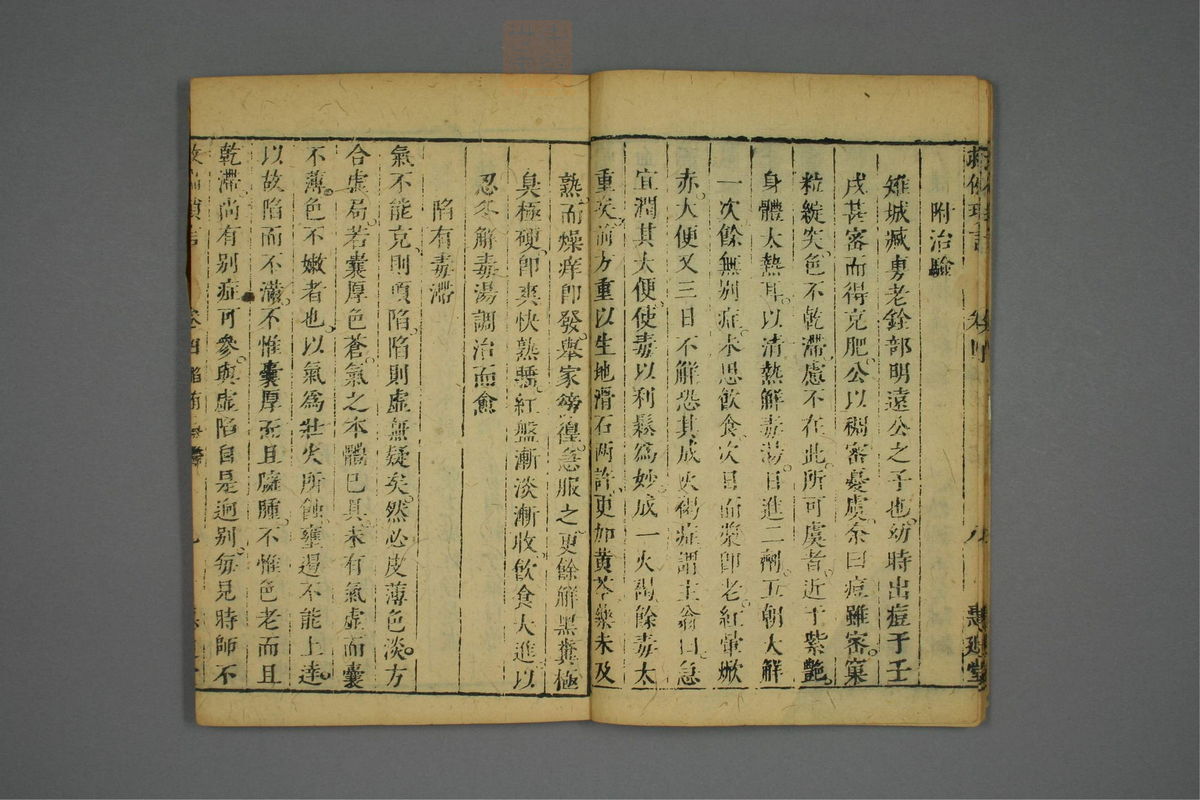 附治驗
雉城臧勇老銓部明遠公之子也幼時出痘于壬
戌甚審而得克肥公以稠審憂虞余曰痘雖審窠
粒綻突色不乾滯慮不在此所可虞者近于紫艷
身體太熱耳以清熱解毒湯日進二劑五朝大解
一次餘無別症未思飲食次日面漿即老紅暈㷩
赤大便又三日不解恐其成火褐症謂主翁曰急
宜潤其大便使毒以利鬆為妙成一火褐餘毒太
重矣前方重以生地滑石两許更加黄芩藥未及
熟而燥痒即發舉家徬徨急服之更餘解黑糞極
臭極硬即爽快熟睡紅盤漸淡漸收飲食大進以
忍冬解毒湯調治而愈
陷有毒滯
氣不能克則頂陷陷則虛無疑矣然必皮薄色淡方
合虛局若囊厚色蒼氣之本體已具未有氣虛而囊
不薄色不嫩者也以氣爲壯火所蝕壅遏不能上逹
以故陷而不滿不惟囊厚而且隨腫不惟色老而且
乾滯尚有别症可參與虛陷自是逈别每見時師不
卷四